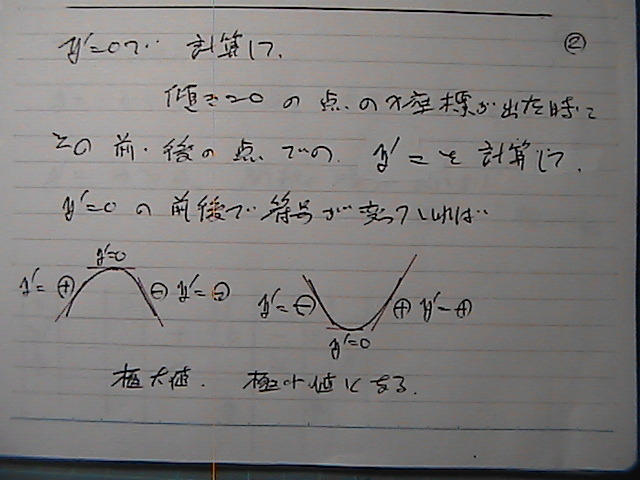 ②
y'=0で 計算して、
傾き=0 の 点の x座標が 出た時に
その 前・後の 点 での y'= を 計算して、
y'=0 の 前後で 符号が 変っていれば
y'=0
y'= ⊕ ⊖ y'= ⊖
y'= ⊖ ⊕ y'= ⊕
y'=0
極大値. 極小値になる.